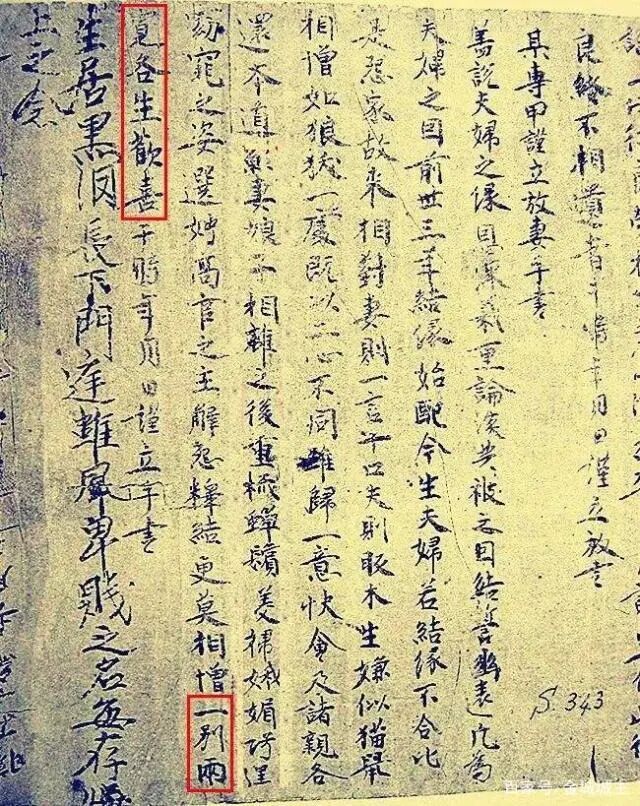 良緣不相遺者于時年月日謹立放書
某專甲謹立放妻手書
盖說夫婦之緣恩深義重論談共被之因結誓幽遠凡為
夫婦之因前世三年結緣始配今生夫婦若結緣不合比
是怨家故来相對妻則一言十口夫則木生嫌似猫鼠
相憎如狼一處既以二心不同難歸一意快會及諸親各
還本道願妻娘子相離之後重梳蟬鬢美掃娥媚巧逞
窈窕之姿選娉高官之主解怨釋結更莫相憎一別兩
寬各生歡喜于時年月日謹立手書
生居黑長下門庭難卑賤之名無存
上之
S.343
百家号/金城城主